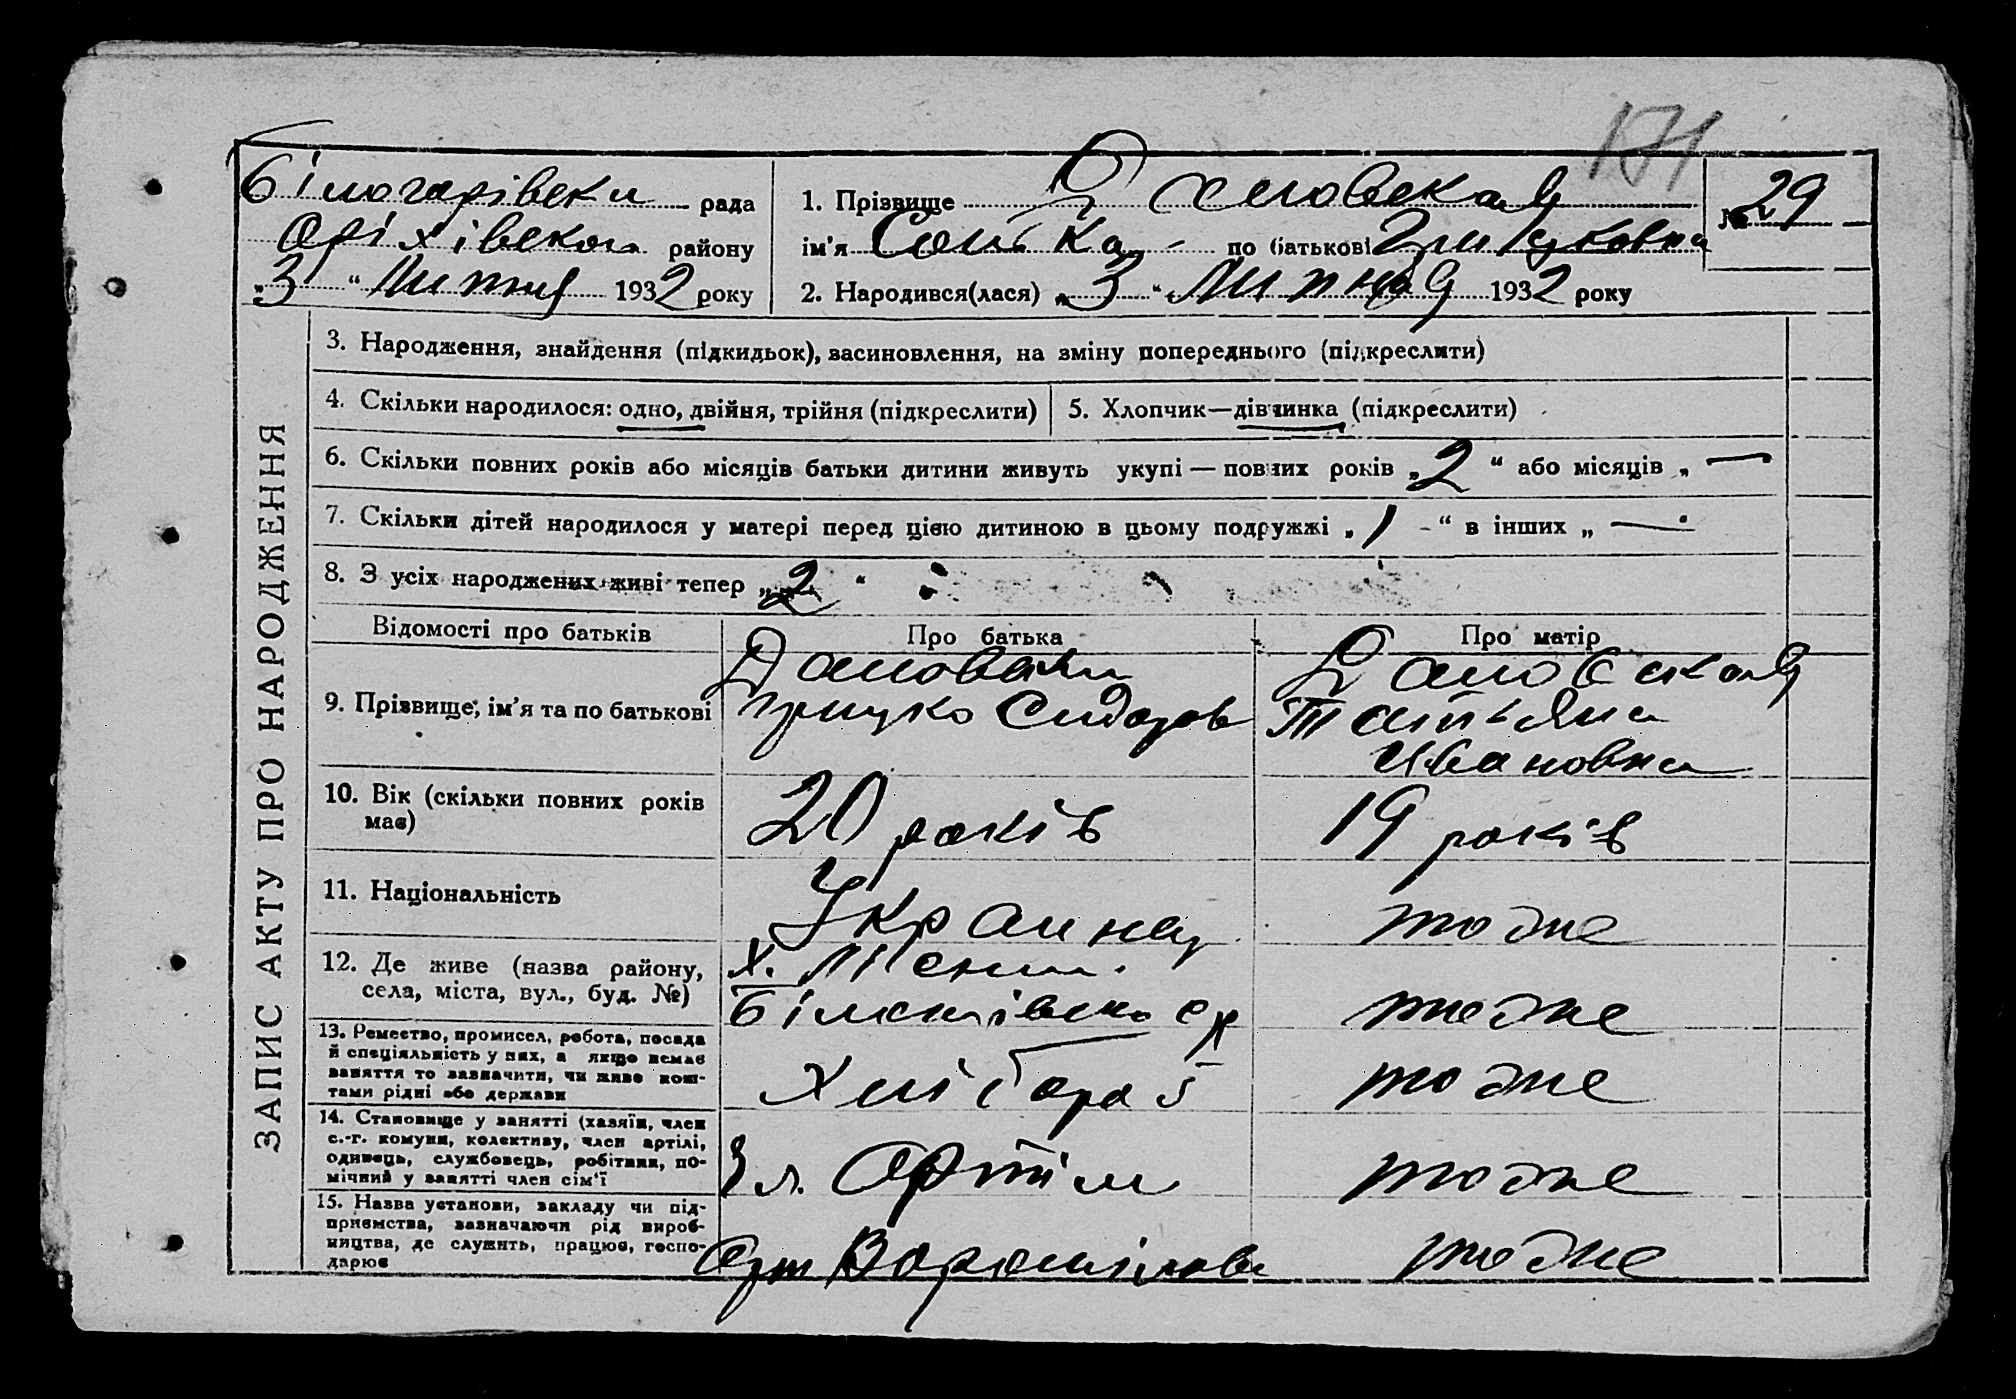 171
Білогарівськ рада
Оріхівськ району
„3“ Липня 1932 року
1. Прізвище
№ 29
ім'я Сонька по батькові Грицковна
2. Народився(лася) „3“ Липня 1932 року
ЗАПИС АКТУ ПРО НАРОДЖЕННЯ
3. Народження, знайдення (підкидьок), засиновлення, на зміну попереднього (підкреслити)
4. Скільки народилося: одно, двійня, трійня (підкреслити)
5. Хлопчик—дівчинка (підкреслити)
6. Скільки повних років або місяців батьки дитини живуть укупі — повних років „2“ або місяців „ —
7. Скільки дітей народилося у матері перед цією дитиною в цьому подружжі „1 -“ в інших „ —
8. З усіх народжених живі тепер „2“
Відомості про батьків
Про батька
Про матір
9. Прізвище, ім'я та по батькові
Грицко Сидоров
Татьяна
Ивановна
10. Вік (скільки повних років
має)
20 років
19 років
11. Національність
Украинец
тоже
12. Де живе (назва району,
села, міста, вул., буд. №)
х.
с р
тоже
13. Ремество, промисел, робота, посада
й спеціяльність у них, а якщо немає
заняття то зазначити, чи живе кош-
тами рідні або держави
Хлібороб
тоже
14. Становище у занятті (хазяїн, член
с.-г. комуни, колективу, член артілі,
одинець, службовець, робітник, по-
мічний у занятті член сім'ї
Чл. Артіли
тоже
15. Назва установи, закладу чи під-
приємства, зазначаючи рід вироб-
ництва, де служить, працює, госпо-
дарює
Арт Ворошилова
тоже